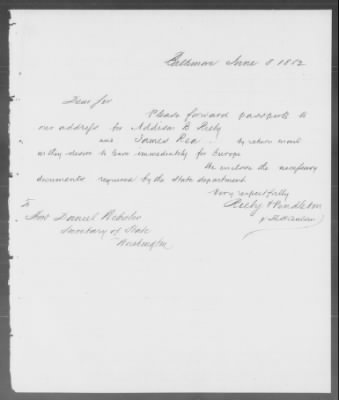 June 8 1852
Dear Sir
Please forward passports to
our address for Addison B
and James Rea by return mail
as they desire to leave immediately for Europe
We enclose the necessary
documents required by the State department
Very respectfully
& Pendleton
To
Hon Daniel Webster
Secretary of State
Washington